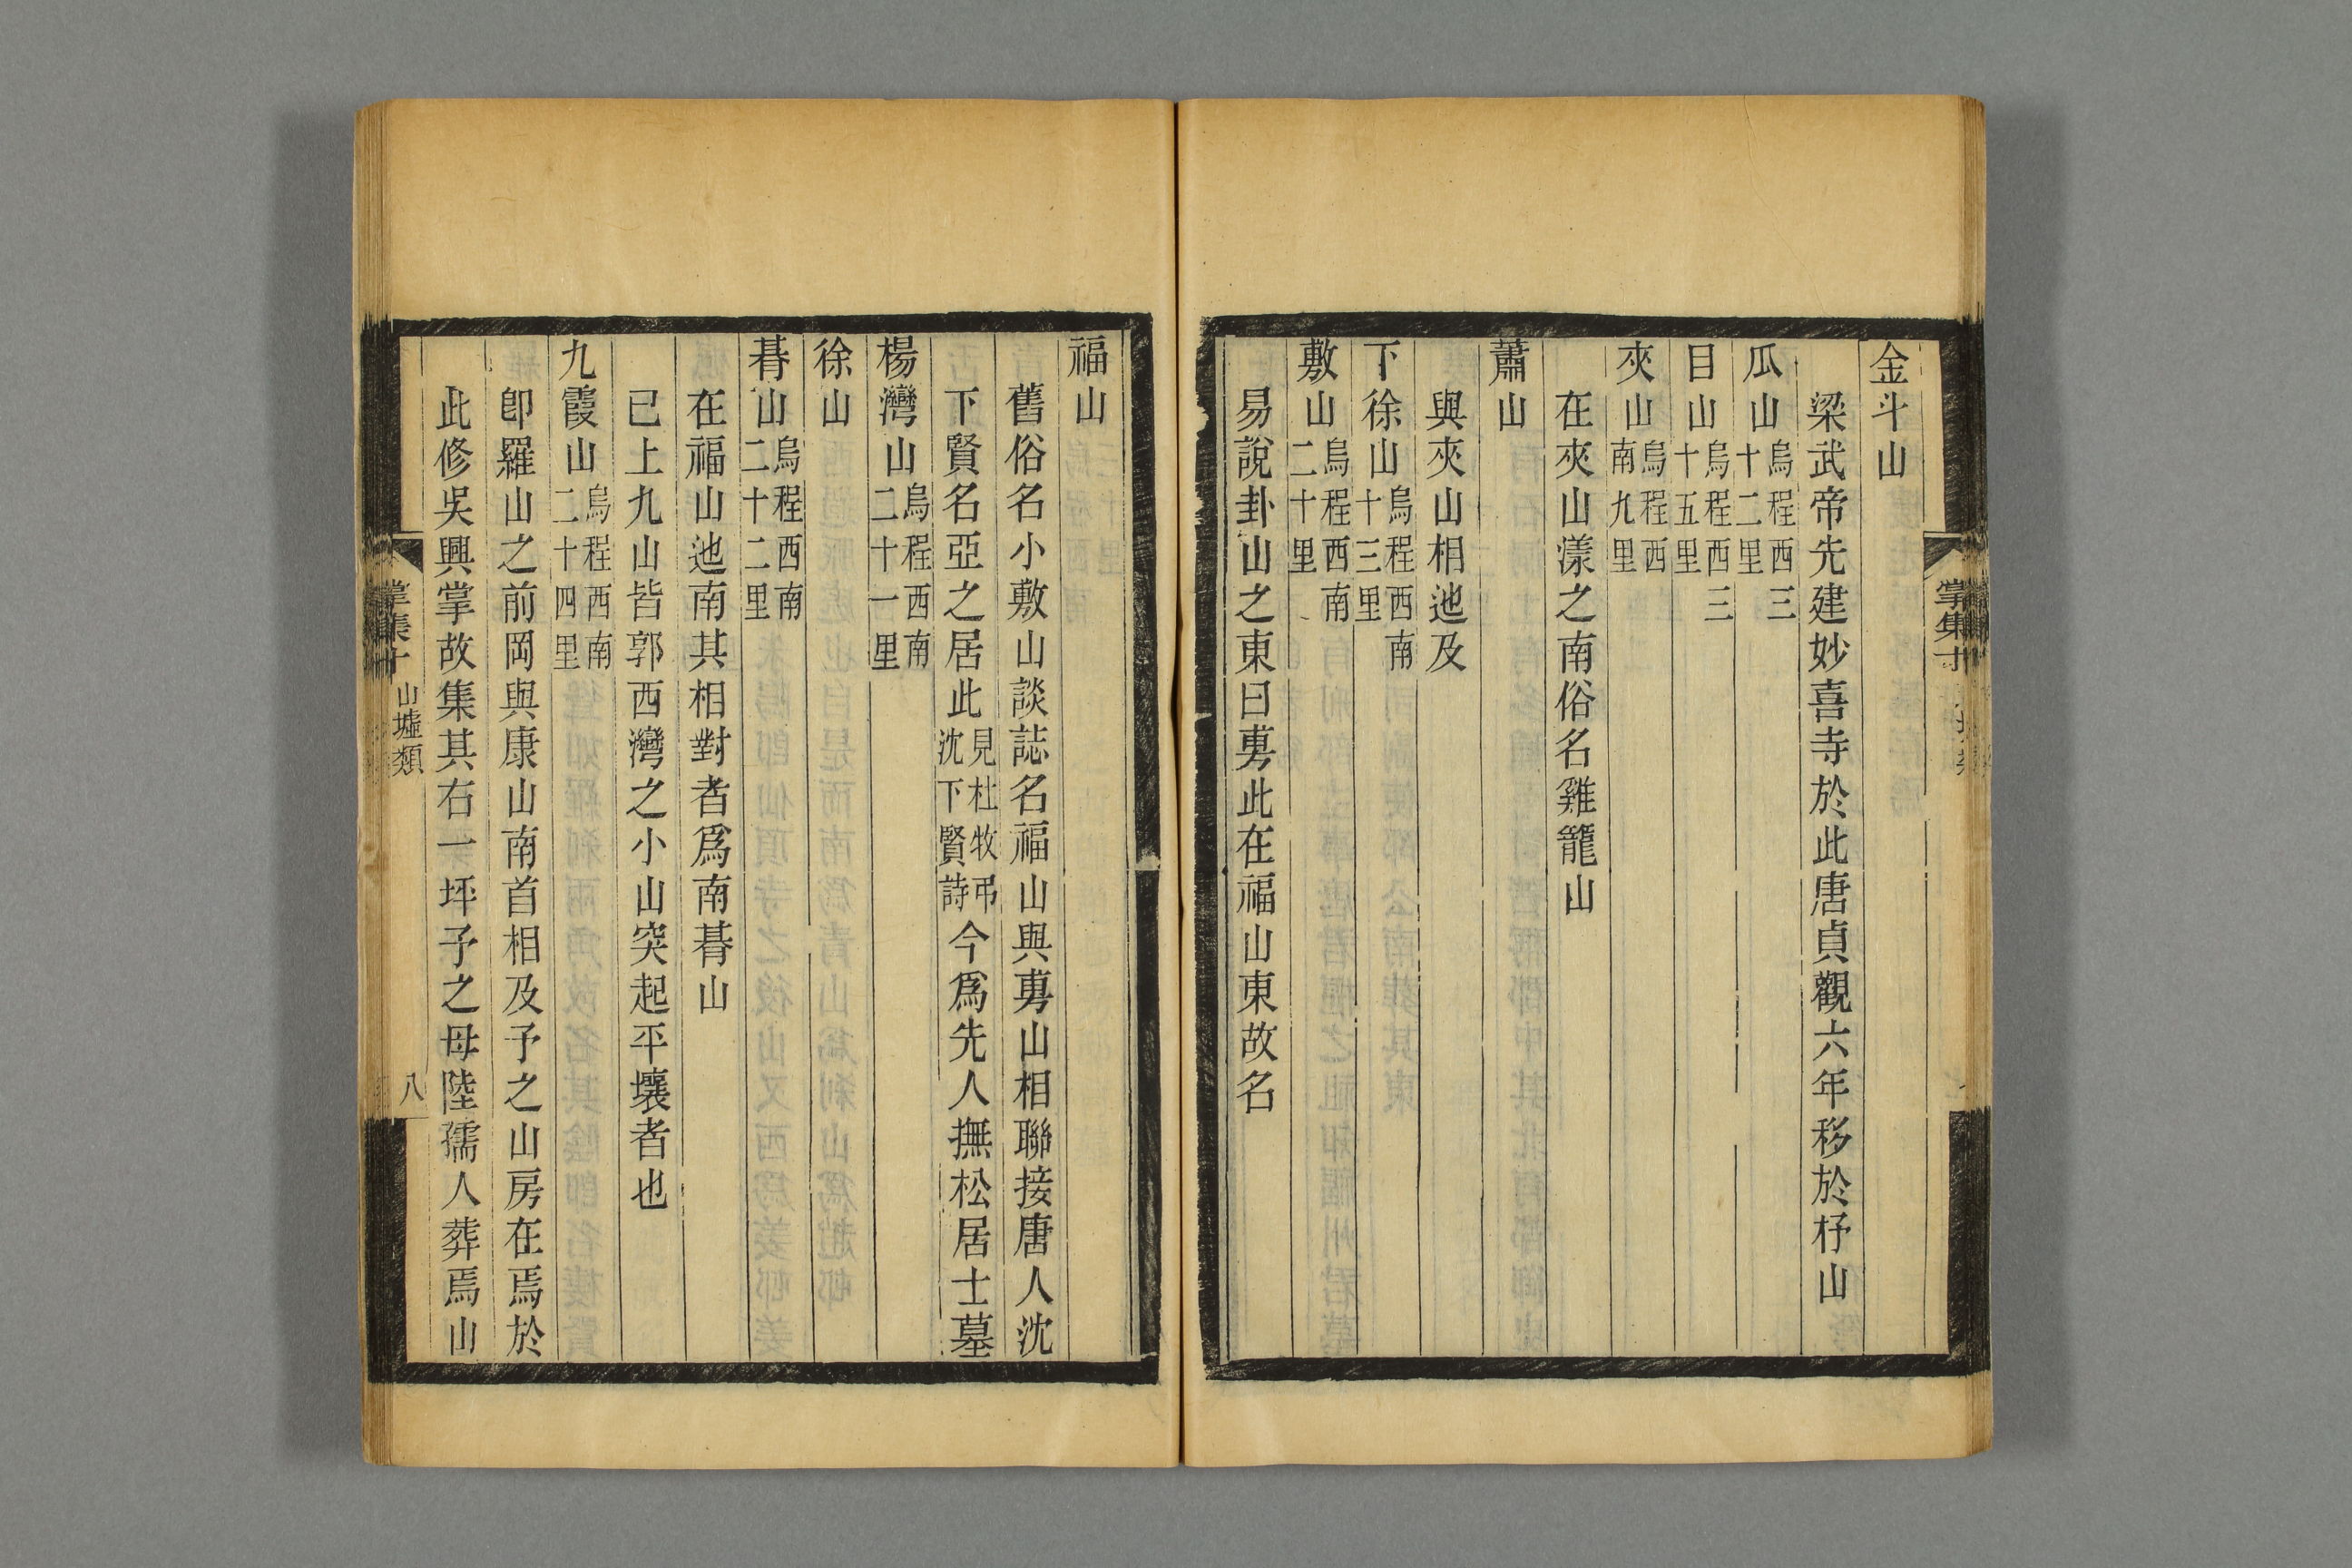 金斗山
梁武帝先建妙喜寺於此唐貞觀六年移於杼山
瓜山烏程西三十二里
目山烏程西三十五里
夾山烏程西南九里
在夾山漾之南俗名雞籠山
蕭山
與夾山相迆及
下徐山烏程西南十三里
敷山烏程西南二十里
易說卦山之東曰旉此在福山東故名
掌集十
福山
舊俗名小敷山談誌名福山與旉山相聯接唐人沈
下賢名亞之居此見杜牧弔沈下賢詩今爲先人撫松居士墓
楊灣山烏程西南二十一里
徐山
碁山烏程西南二十二里
在福山迆南其相對者爲南碁山
已上九山皆郭西灣之小山突起平壤者也
九霞山烏程西南二十四里
卽羅山之前岡與康山南首相及予之山房在焉於
此修吳興掌故集其右一坪予之母陸孺人葬焉山
掌集十 山墟類 八